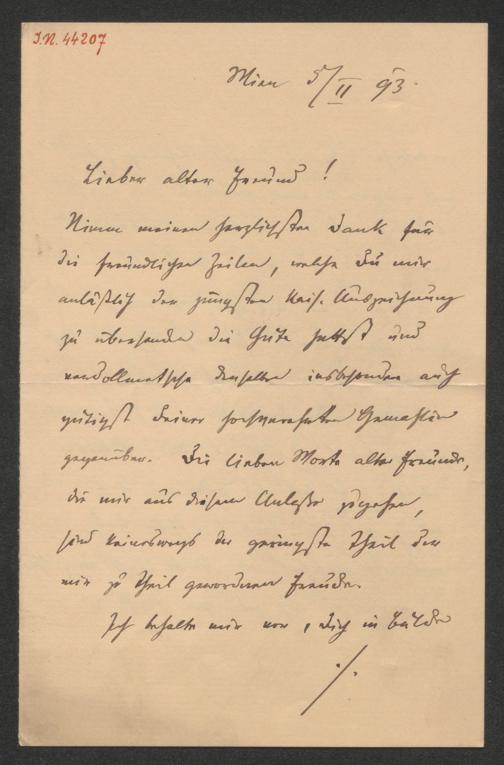 J.N. 44207
Wien 5/II 93.
Lieber alter Freund!
Nimm meinen herzlichsten Dank für
die freundlichen Zeilen, welche Du mir
anläßlich der jüngsten kais. Auszeichnung
zu übersenden die Güte hattest und
verdollmetsche denselben insbesondere auch
gütigst Deiner hochverehrten Gemahlin
gegenüber. Die lieben Worte alter Freunde,
die mir aus diesem Anlaße zugehen,
sind keineswegs der geringste Theil der
mir zu Theil gewordenen Freude.
Ich behalte mir vor, Dich in Bälde
./.